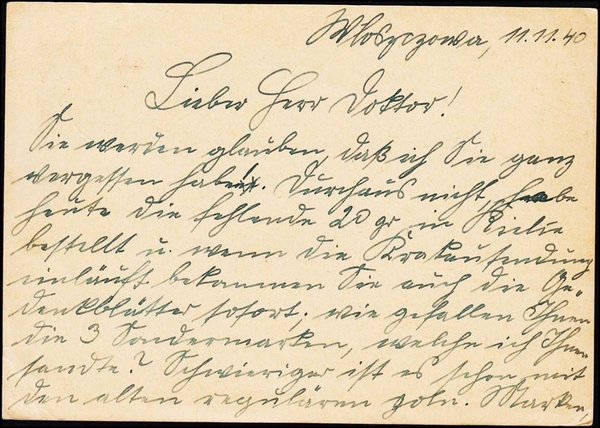 Wloszczowa, 11.11.40
Lieber Herr Doktor!
Sie werden glauben, daß ich Sie ganz
vergessen habe!. Durchaus nicht, habe
heute die fehlende 20 gr. in Kielce
bestellt u. wenn die Krakausendung
einläuft bekommen Sie auch die Ge-
denkblätter sofort. wie gefallen Ihnen
die 3 Sondermarken, welche ich Ihnen
sandte? Schwieriger ist es schon mit
den alten regulären poln. Marken,